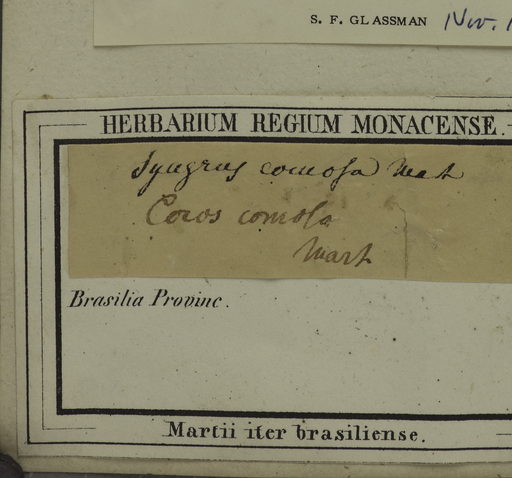 S. F. GLASSMAN Nov.
HERBARIUM REGIUM MONACENSE.
Syagrus comosa Mart
Cocos comosa
Mart
Brasilia Provinc.
Martii iter brasiliense.